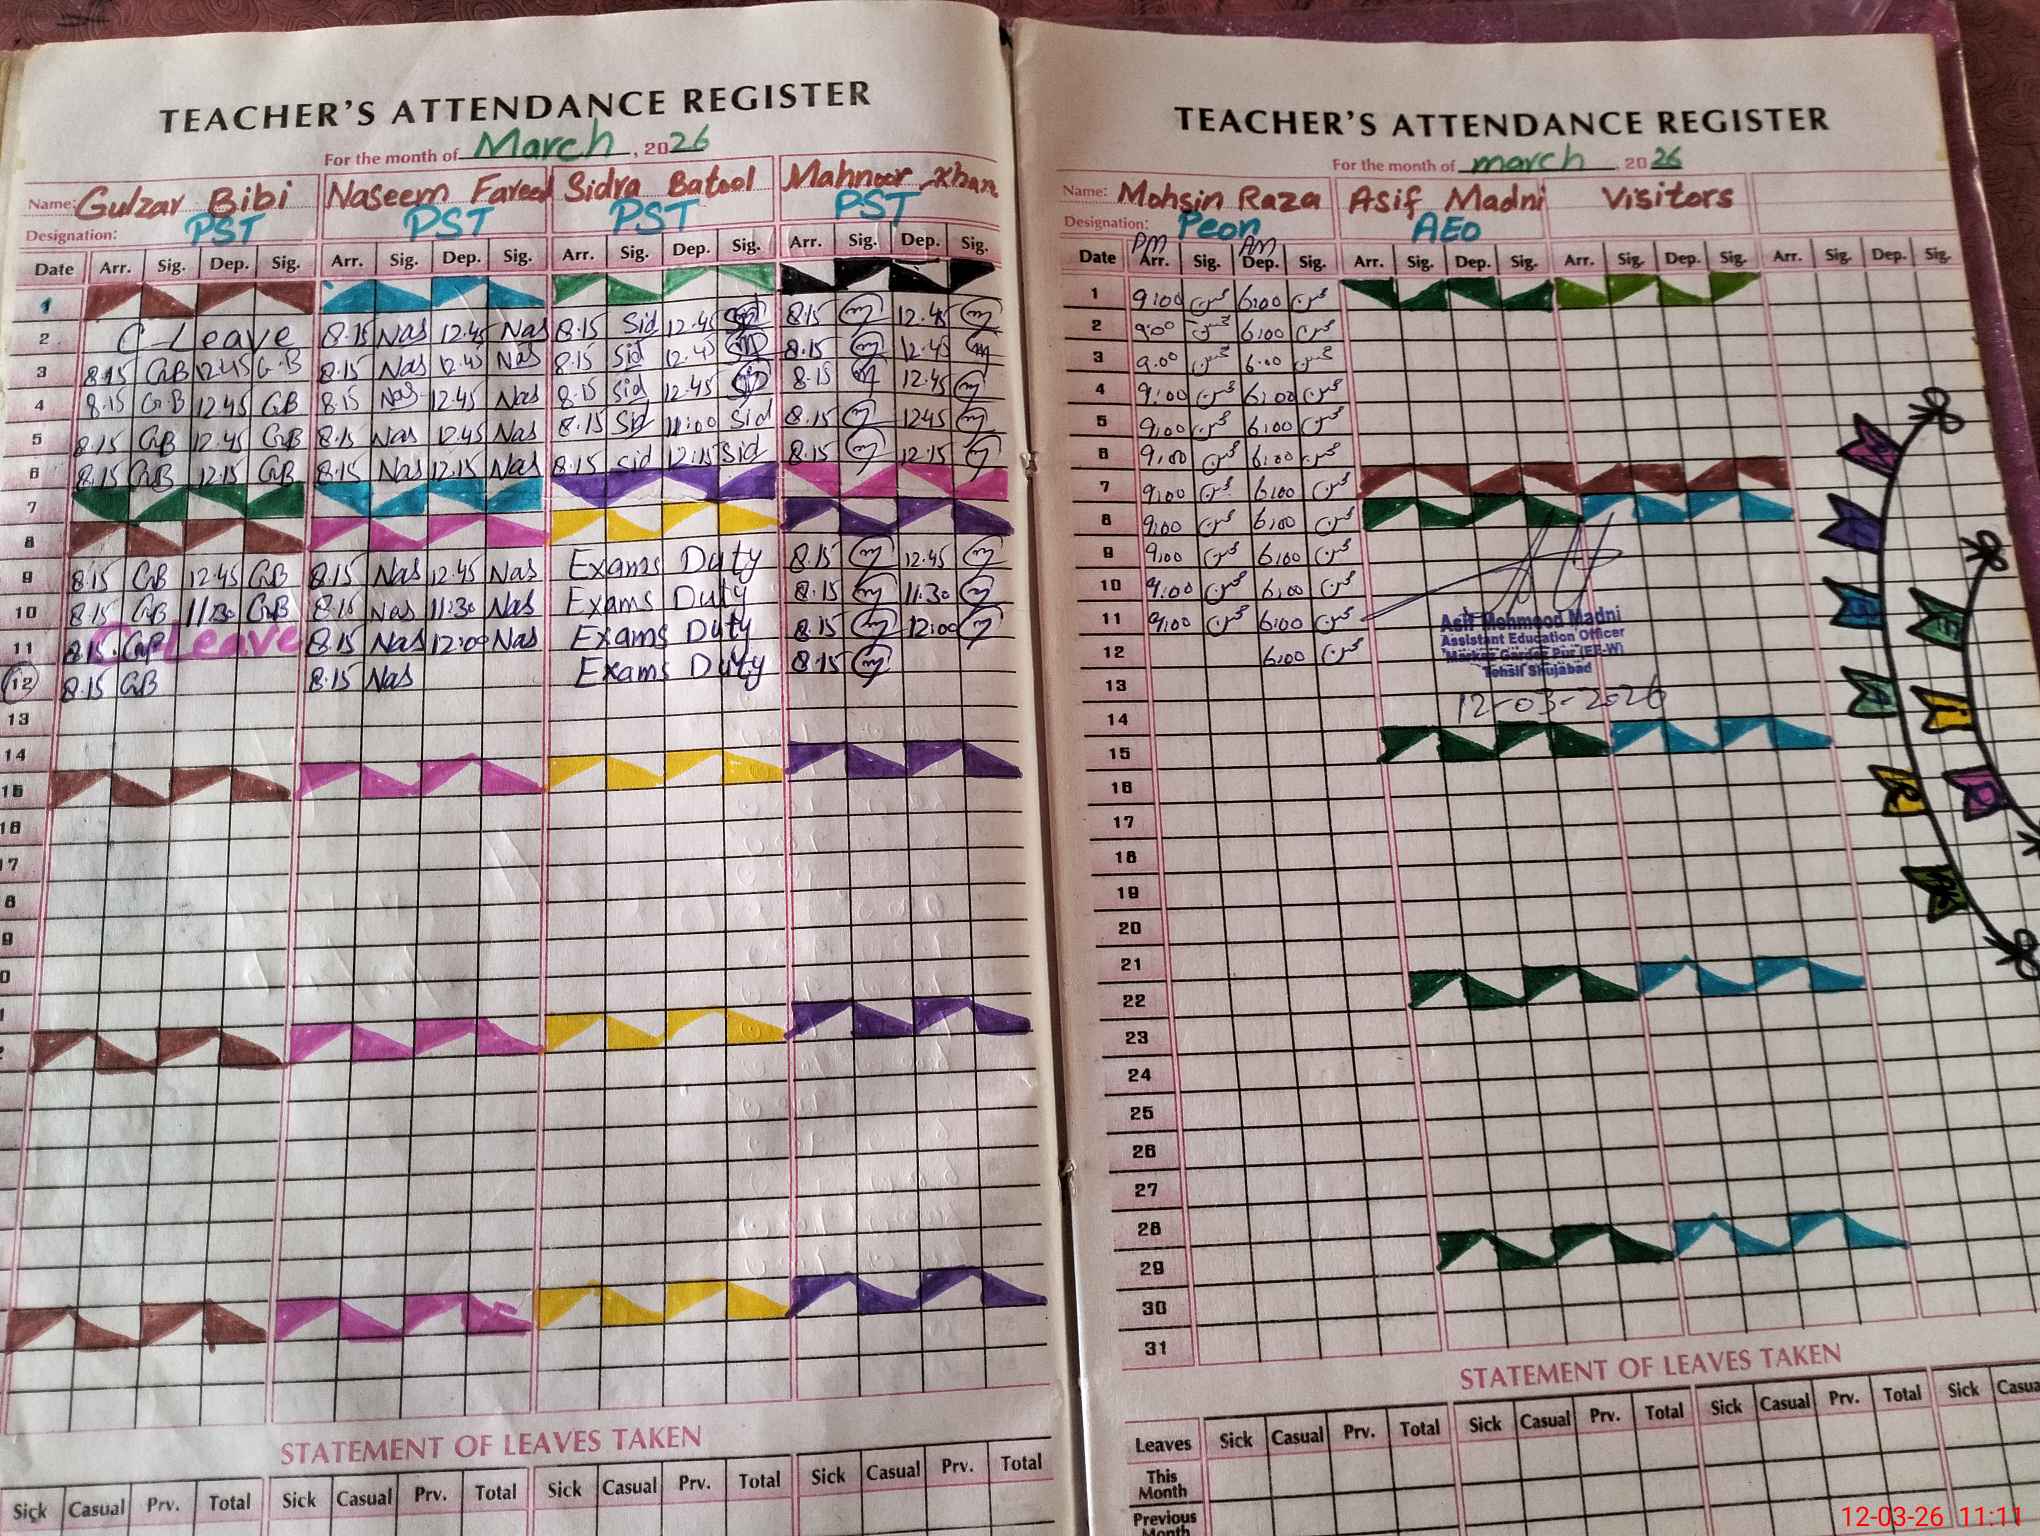 TEACHER'S ATTENDANCE REGISTER
For the month of March, 2026
Name: Gulzar Bibi Naseem Fareed Sidra Batool Mahnoor Khan
Designation: PST PST PST PST
Date Arr. Sig. Dep. Sig. Arr. Sig. Dep. Sig. Arr. Sig. Dep. Sig. Arr. Sig. Dep. Sig.
1
2 C-Leave 8.15 Nas 12.45 Nas 8.15 Sid 12.45 Sid 8.15 m 12.45 m
3 8.15 GB 12.45 G.B 8.15 Nas 12.45 Nas 8.15 Sid 12.45 Sid 8.15 m 12.45 m
4 8.15 G.B 12.45 GB 8.15 Nas 12.45 Nas 8.15 Sid 12.45 Sid 8.15 m 12.45 m
5 8.15 GB 12.45 GB 8.15 Nas 12.45 Nas 8.15 Sid 11:00 Sid 8.15 m 12.45 m
6 8.15 GB 12.15 GB 8.15 Nas 12.15 Nas 8.15 Sid 12.15 Sid 8.15 m 12.15 m
7
8
9 8.15 GB 12.45 GB 8.15 Nas 12.45 Nas Exams Duty 8.15 m 12.45 m
10 8.15 GB 11:30 GB 8.15 Nas 11:30 Nas Exams Duty 8.15 m 11.30 m
11 8.15 GB C-Leave 8.15 Nas 12:00 Nas Exams Duty 8.15 m 12:00 m
12 8.15 GB 8.15 Nas Exams Duty 8.15 m
13
14
15
16
17
8
9
0
STATEMENT OF LEAVES TAKEN
Sick Casual Prv. Total Sick Casual Prv. Total Sick Casual Prv. Total Sick Casual Prv. Total
TEACHER'S ATTENDANCE REGISTER
For the month of march, 2026
Name: Mohsin Raza Asif Madni Visitors
Designation: Peon AEO
PM AM
Date Arr. Sig. Dep. Sig. Arr. Sig. Dep. Sig. Arr. Sig. Dep. Sig. Arr. Sig. Dep. Sig.
1 9:00 6:00
2 9:00 6:00
3 9:00 6:00
4 9:00 6:00
5 9:00 6:00
6 9:00 6:00
7 9:00 6:00
8 9:00 6:00
9 9:00 6:00
10 9:00 6:00
11 9:00 6:00
12 6:00
Asif Mehmood Madni
Assistant Education Officer
Markaz Gardez Pur (EE-W)
Tehsil Shujabad
13
12-03-2026
14
15
16
17
18
19
20
21
22
23
24
25
26
27
28
29
30
31
STATEMENT OF LEAVES TAKEN
Leaves Sick Casual Prv. Total Sick Casual Prv. Total Sick Casual Prv. Total Sick Casual
This Month
Previous Month
12-03-26 11:11